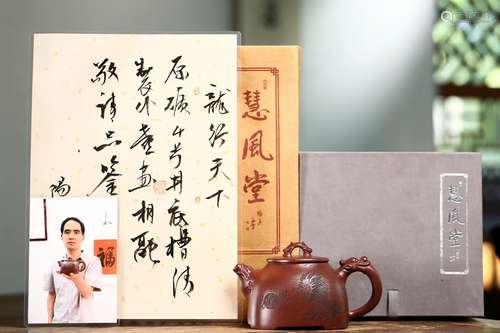 龍行天下
原礦4号井底槽清
製小壺畫相融
敬請品鑒
陽
慧風堂
慧風堂
福